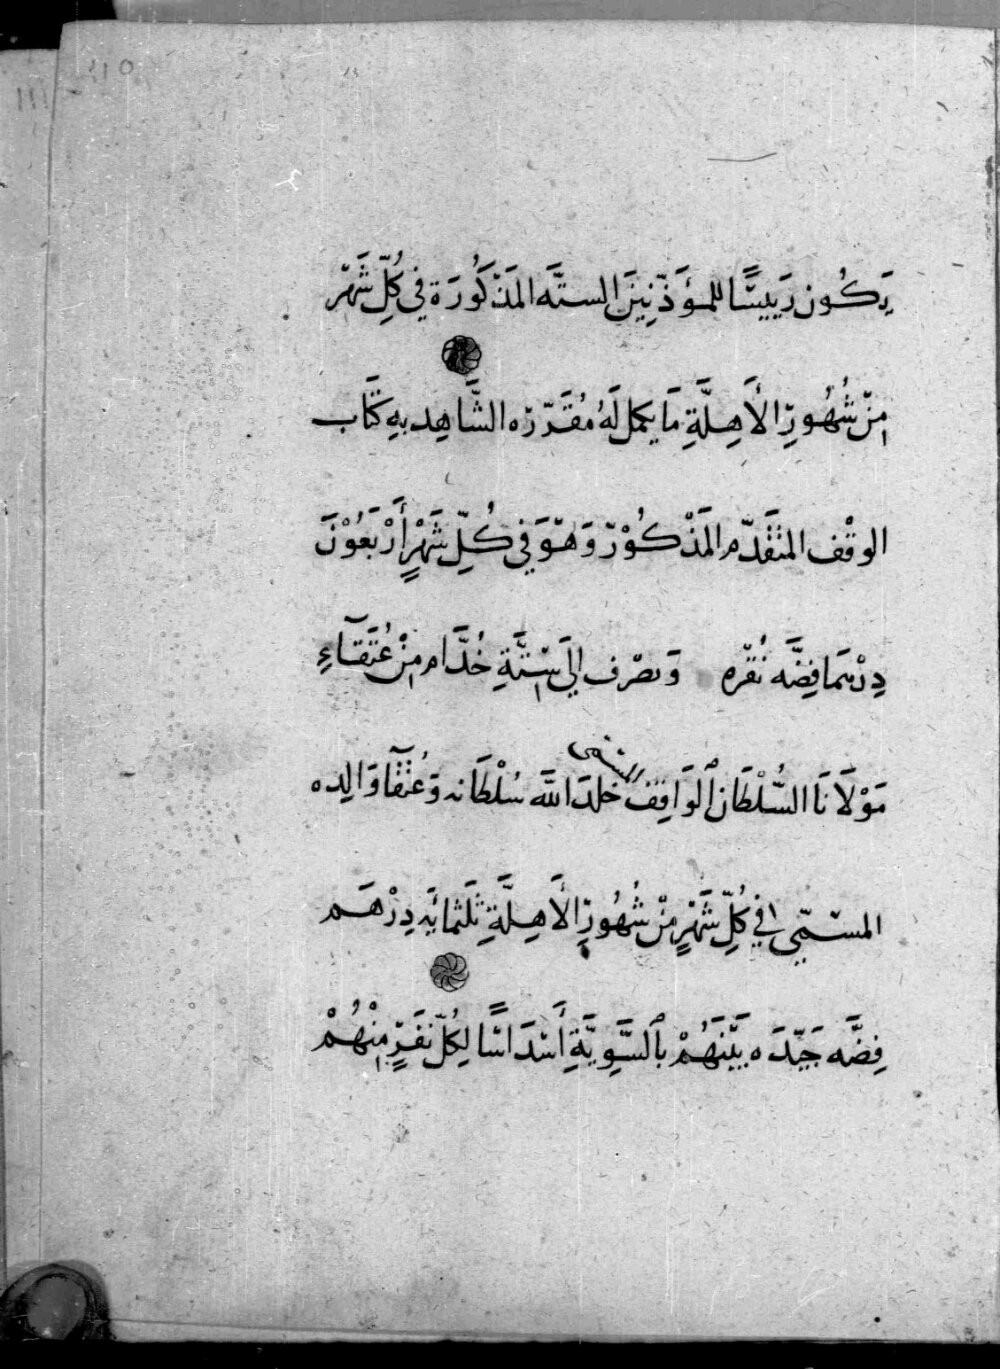 ١١٠
١١١
يَكُون رَييسًّا للمؤَذّنِينَ الستَّه المَذْكُورَة في كُلِّ شَهْرٍ
مِنْ شُهُورِ الأَهِلَّةِ مَا يكمل لَهُ مُقَرّره الشَّاهِد بهِ كتَاب
الوقْف المتقَدّم المَذْكُوْر وَهوَ في كُلِّ شَهْرٍ أَرْبَعُوْنَ
دِرْهَمَا فِضَّه نُقْره وَيصْرف إلَى سْتَّةِ خُدَّام مِنْ عُتَقآءِ
مَوْلَانَا السُّلْطَان ٱلوَاقِف المسَمى خَلدَ اللهَ سُلْطَانه وَعُتْقَآ وَالِده
المسمّى في كُلِّ شَهْرٍ مِنْ شُهُورِ الأَهِلَّةِ ثَلثمائَه دِرْهَم
فِضَّه جَيّدَه بَيْنَهُمْ بٱلسَّوِيَّةِ أَسْدَاسًا لِكُلّ نَفَرٍ مِنْهُمْ